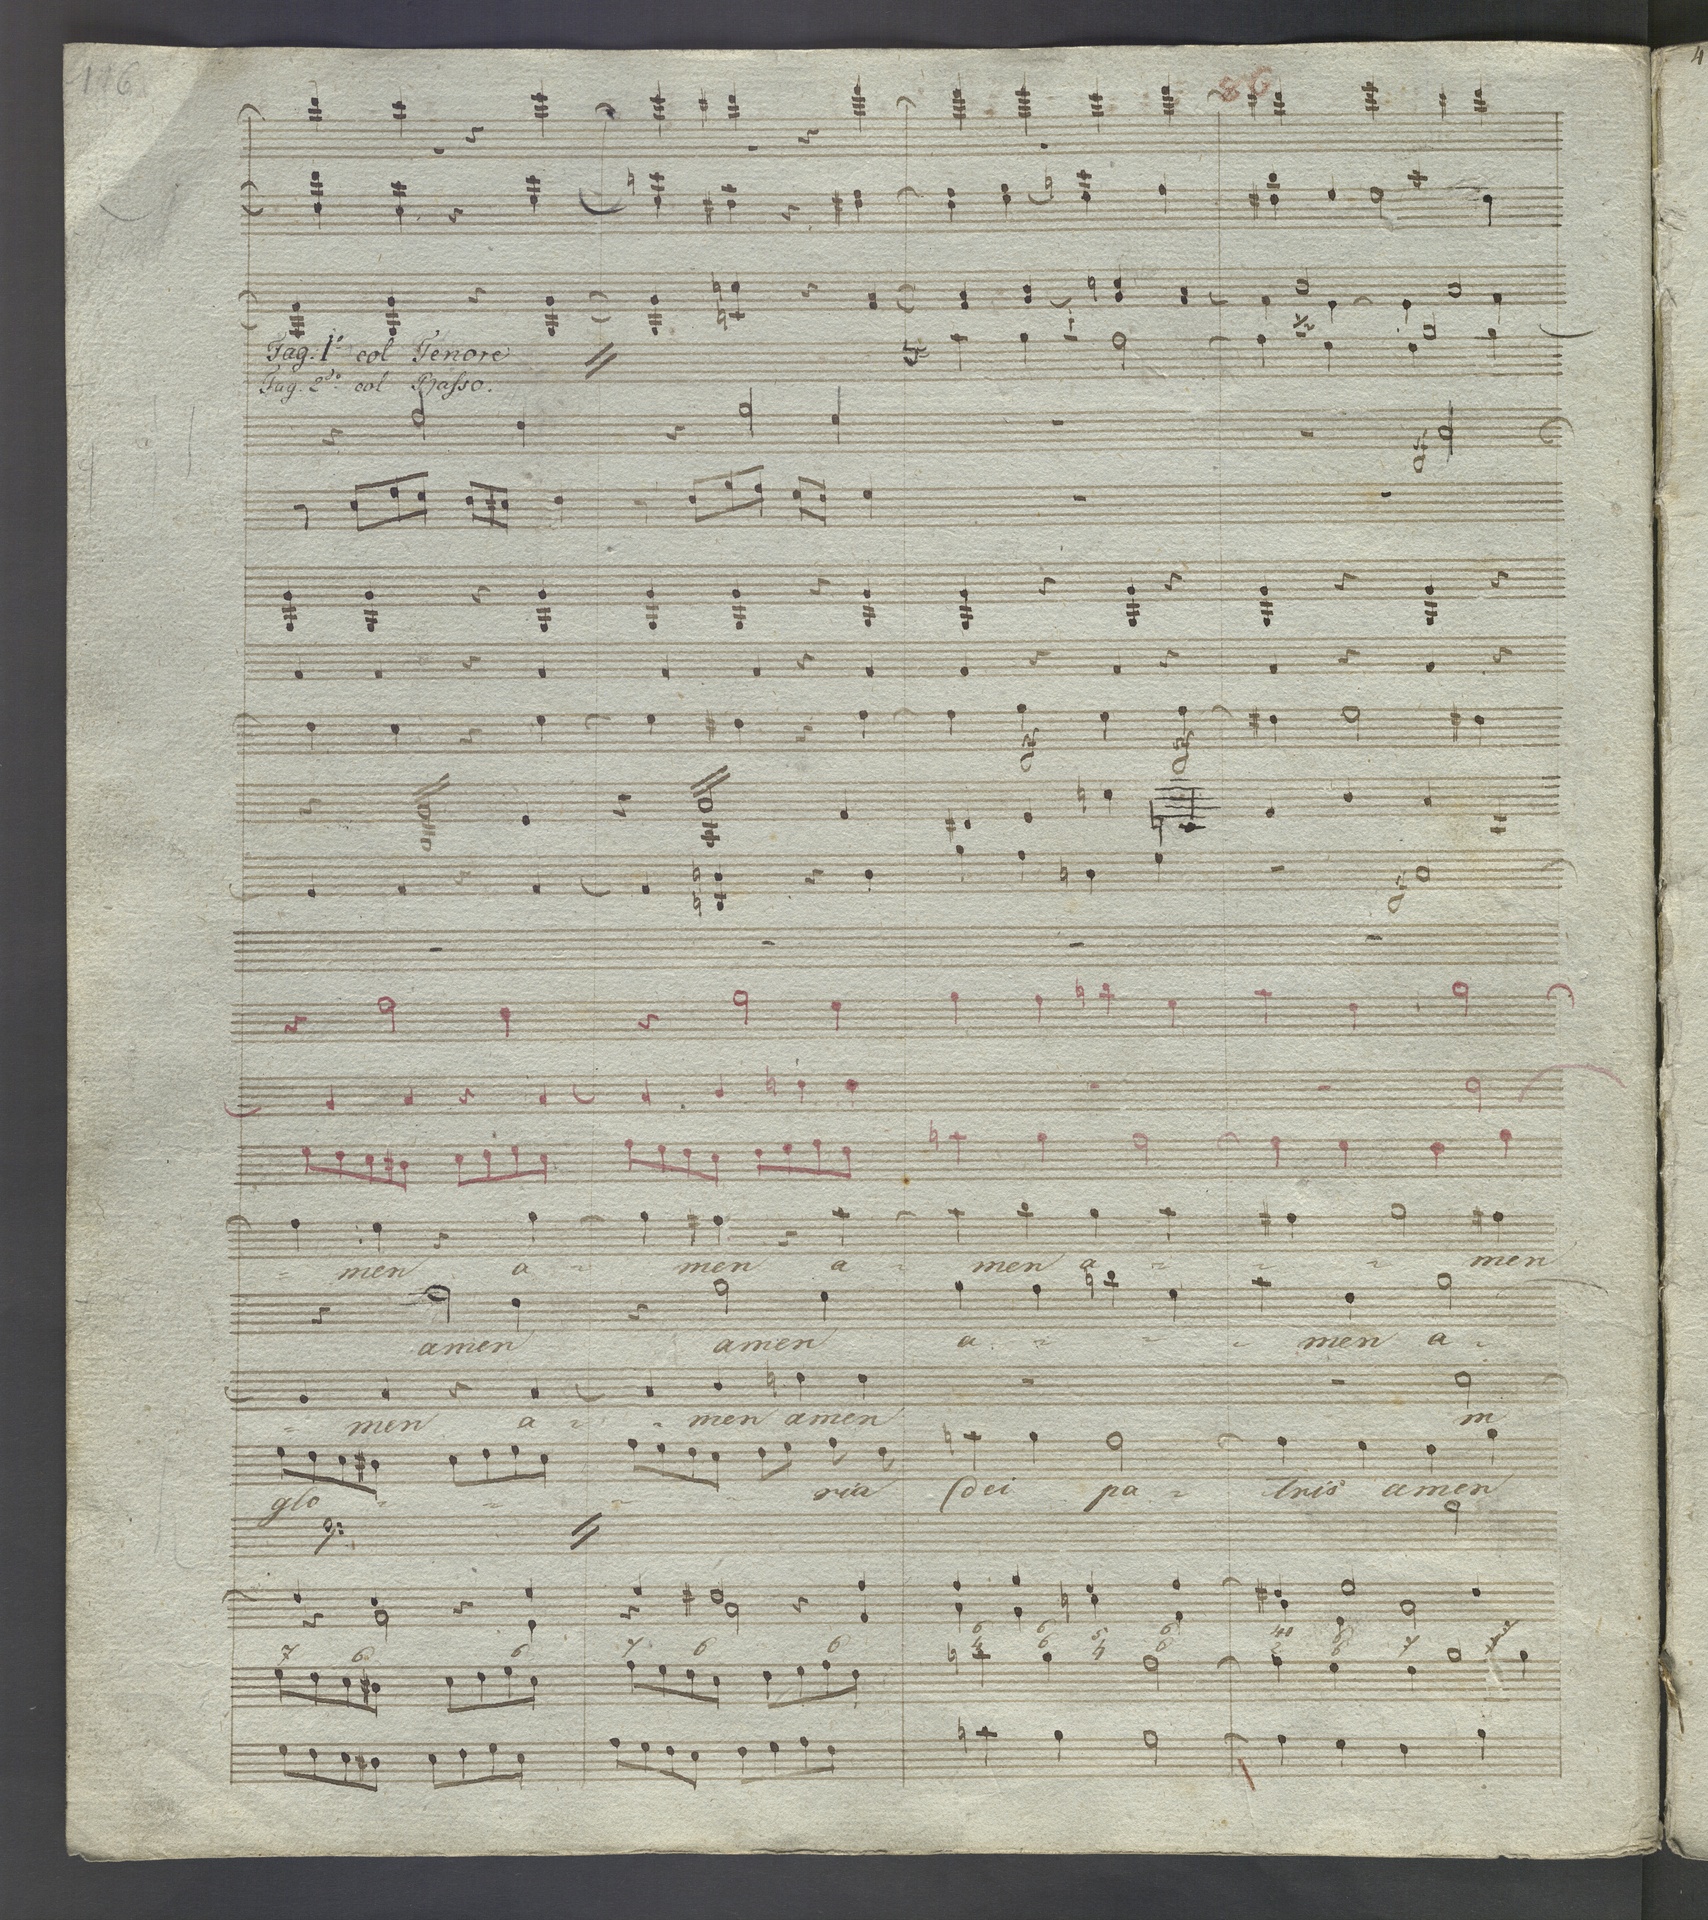 116
86
4
Fag. 1º col Tenore
Fag. 2do. col Basso.
- men a - men a - men a - - - men
amen amen a - - - men a -
- men a - - men amen m
glo - - - ria Dei pa - tris amen
7 6 6 7 6 6